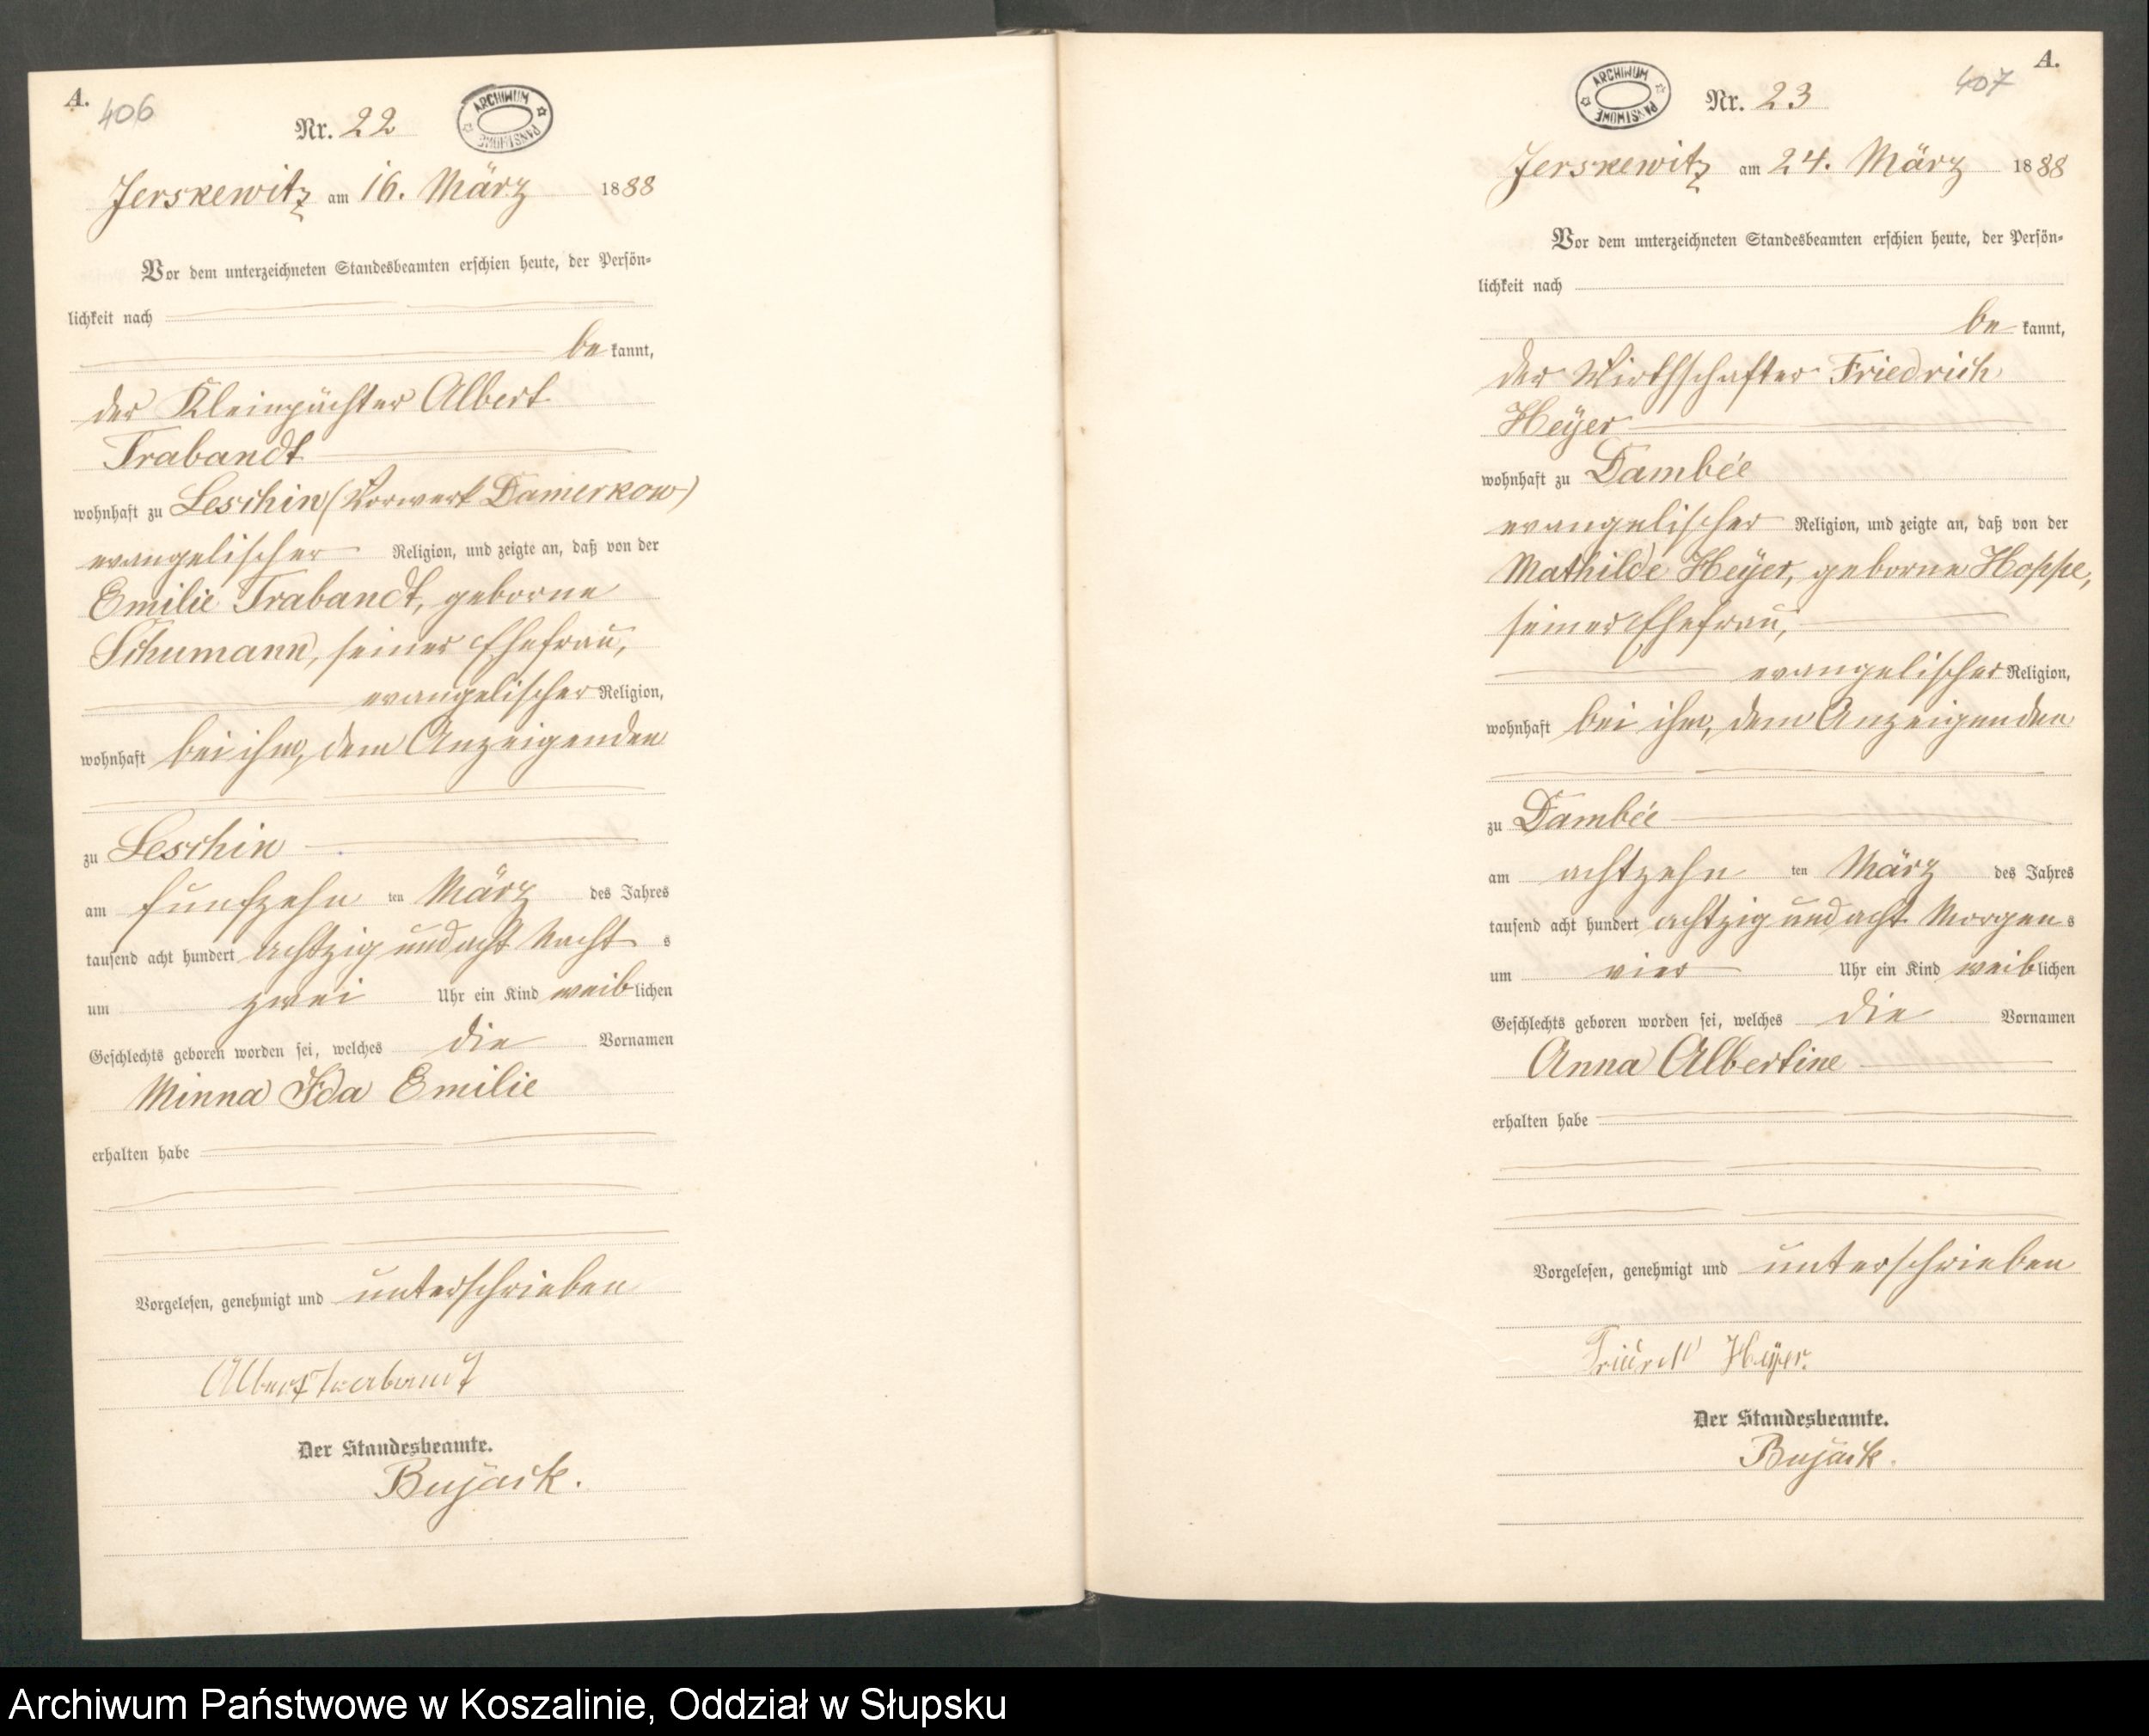 A.
406
Nr. 22
ARCHIWUM PAŃSTWOWE
Jerskewitz am 16. März 1888
Vor dem unterzeichneten Standesbeamten erschien heute, der Persön-
lichkeit nach
be kannt,
der Kleinpächter Albert
Trabandt
wohnhaft zu Leschin (Vorwerk Damerkow)
evangelischer Religion, und zeigte an, daß von der
Emilie Trabandt, geborne
Schumann, seiner Ehefrau,
evangelischer Religion,
wohnhaft bei ihm, dem Anzeigenden
zu Leschin
am fünfzehn ten März des Jahres
tausend acht hundert achtzig und acht Nacht s
um zwei Uhr ein Kind weib lichen
Geschlechts geboren worden sei, welches die Vornamen
Minna Ida Emilie
erhalten habe
Vorgelesen, genehmigt und unterschrieben
Albert Trabandt
Der Standesbeamte.
Bujack.
A.
407
Nr. 23
ARCHIWUM PAŃSTWOWE
Jerskewitz am 24. März 1888
Vor dem unterzeichneten Standesbeamten erschien heute, der Persön-
lichkeit nach
be kannt,
der Wirthschafter Friedrich
Heyer
wohnhaft zu Dambée
evangelischer Religion, und zeigte an, daß von der
Mathilde Heyer, geborne Hoppe,
seiner Ehefrau,
evangelischer Religion,
wohnhaft bei ihm, dem Anzeigenden
zu Dambée
am achtzehn ten März des Jahres
tausend acht hundert achtzig und acht Morgen s
um vier Uhr ein Kind weib lichen
Geschlechts geboren worden sei, welches die Vornamen
Anna Albertine
erhalten habe
Vorgelesen, genehmigt und unterschrieben
Heyer.
Der Standesbeamte.
Bujack.
Archiwum Państwowe w Koszalinie, Oddział w Słupsku